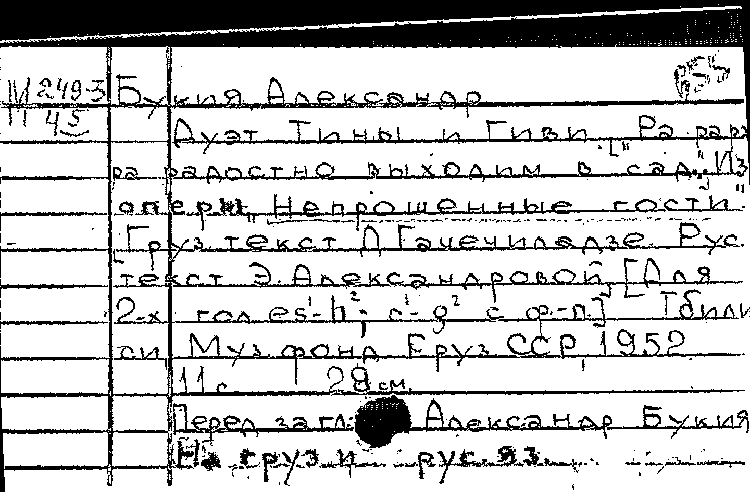 М 249-3 Букия, Александр
45 Дуэт Тины и Гиви. ["Ра рара
ра радостно выходим в сад". Из
оперы "Непрошенные гости".
[Груз. текст Д. Гачечиладзе. Рус.
текст Э. Александровой]. [Для
2-х гол. es¹-h²; c¹-g² с ф-п]. Тбили
си, Муз. фонд Груз. ССР, 1952
11 с. 28 см.
Перед загл. Александр Букия
На груз. и рус. яз.